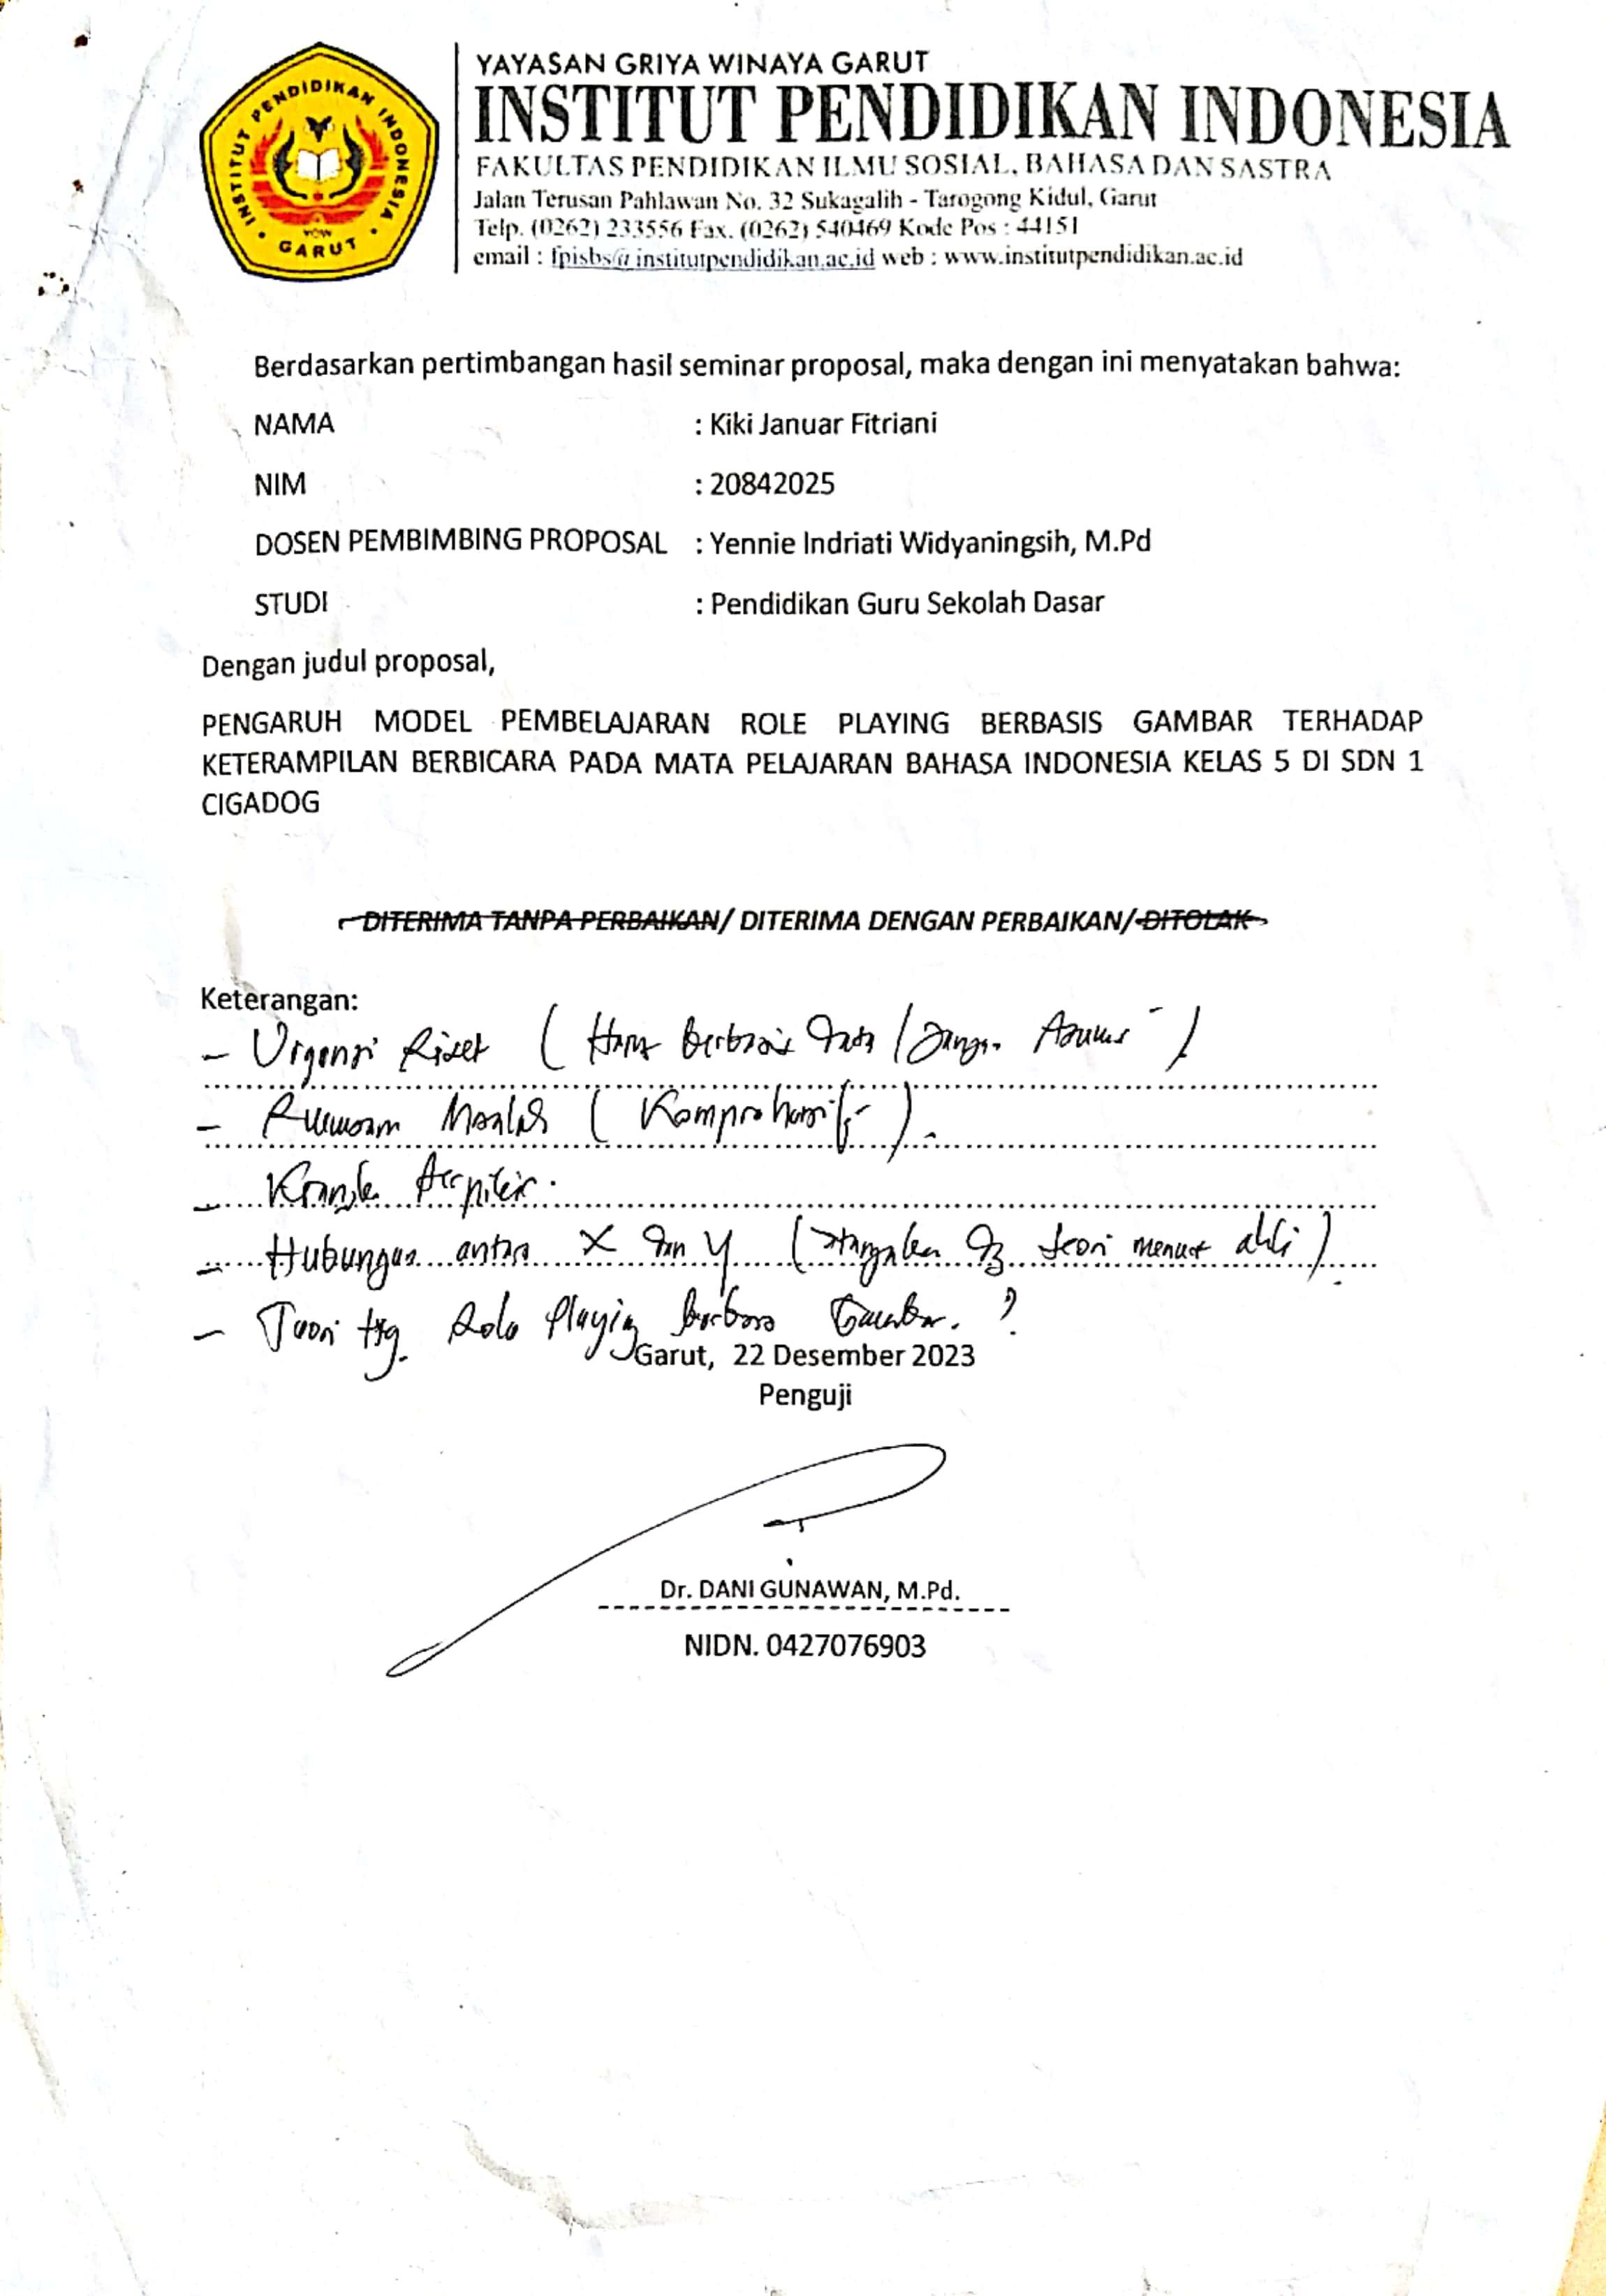 INSTITUT PENDIDIKAN INDONESIA
YGW
GARUT
YAYASAN GRIYA WINAYA GARUT
INSTITUT PENDIDIKAN INDONESIA
FAKULTAS PENDIDIKAN ILMU SOSIAL, BAHASA DAN SASTRA
Jalan Terusan Pahlawan No. 32 Sukagalih - Tarogong Kidul, Garut
Telp. (0262) 233556 Fax. (0262) 540469 Kode Pos : 44151
email : fpisbs@institutpendidikan.ac.id web : www.institutpendidikan.ac.id
Berdasarkan pertimbangan hasil seminar proposal, maka dengan ini menyatakan bahwa:
NAMA : Kiki Januar Fitriani
NIM : 20842025
DOSEN PEMBIMBING PROPOSAL : Yennie Indriati Widyaningsih, M.Pd
STUDI : Pendidikan Guru Sekolah Dasar
Dengan judul proposal,
PENGARUH MODEL PEMBELAJARAN ROLE PLAYING BERBASIS GAMBAR TERHADAP
KETERAMPILAN BERBICARA PADA MATA PELAJARAN BAHASA INDONESIA KELAS 5 DI SDN 1
CIGADOG
DITERIMA TANPA PERBAIKAN/ DITERIMA DENGAN PERBAIKAN/ DITOLAK
Keterangan:
- Urgensi Riset ( Harus berbasis data / Jangan Asumsi )
- Rumusan Masalah ( Komprehensif ).
- Kerangka berpikir.
- Hubungan antara X dan Y ( dg teori menurut ahli )
- Teori ttg. Role Playing berbasis Gambar. ?
Garut, 22 Desember 2023
Penguji
Dr. DANI GUNAWAN, M.Pd.
NIDN. 0427076903